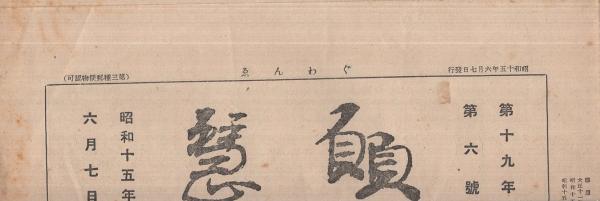 昭和十五年六月七日發行
ぐわんゑ
(第三種郵便物認可)
第十九年
第六號
願慧
昭和十五年
六月七日